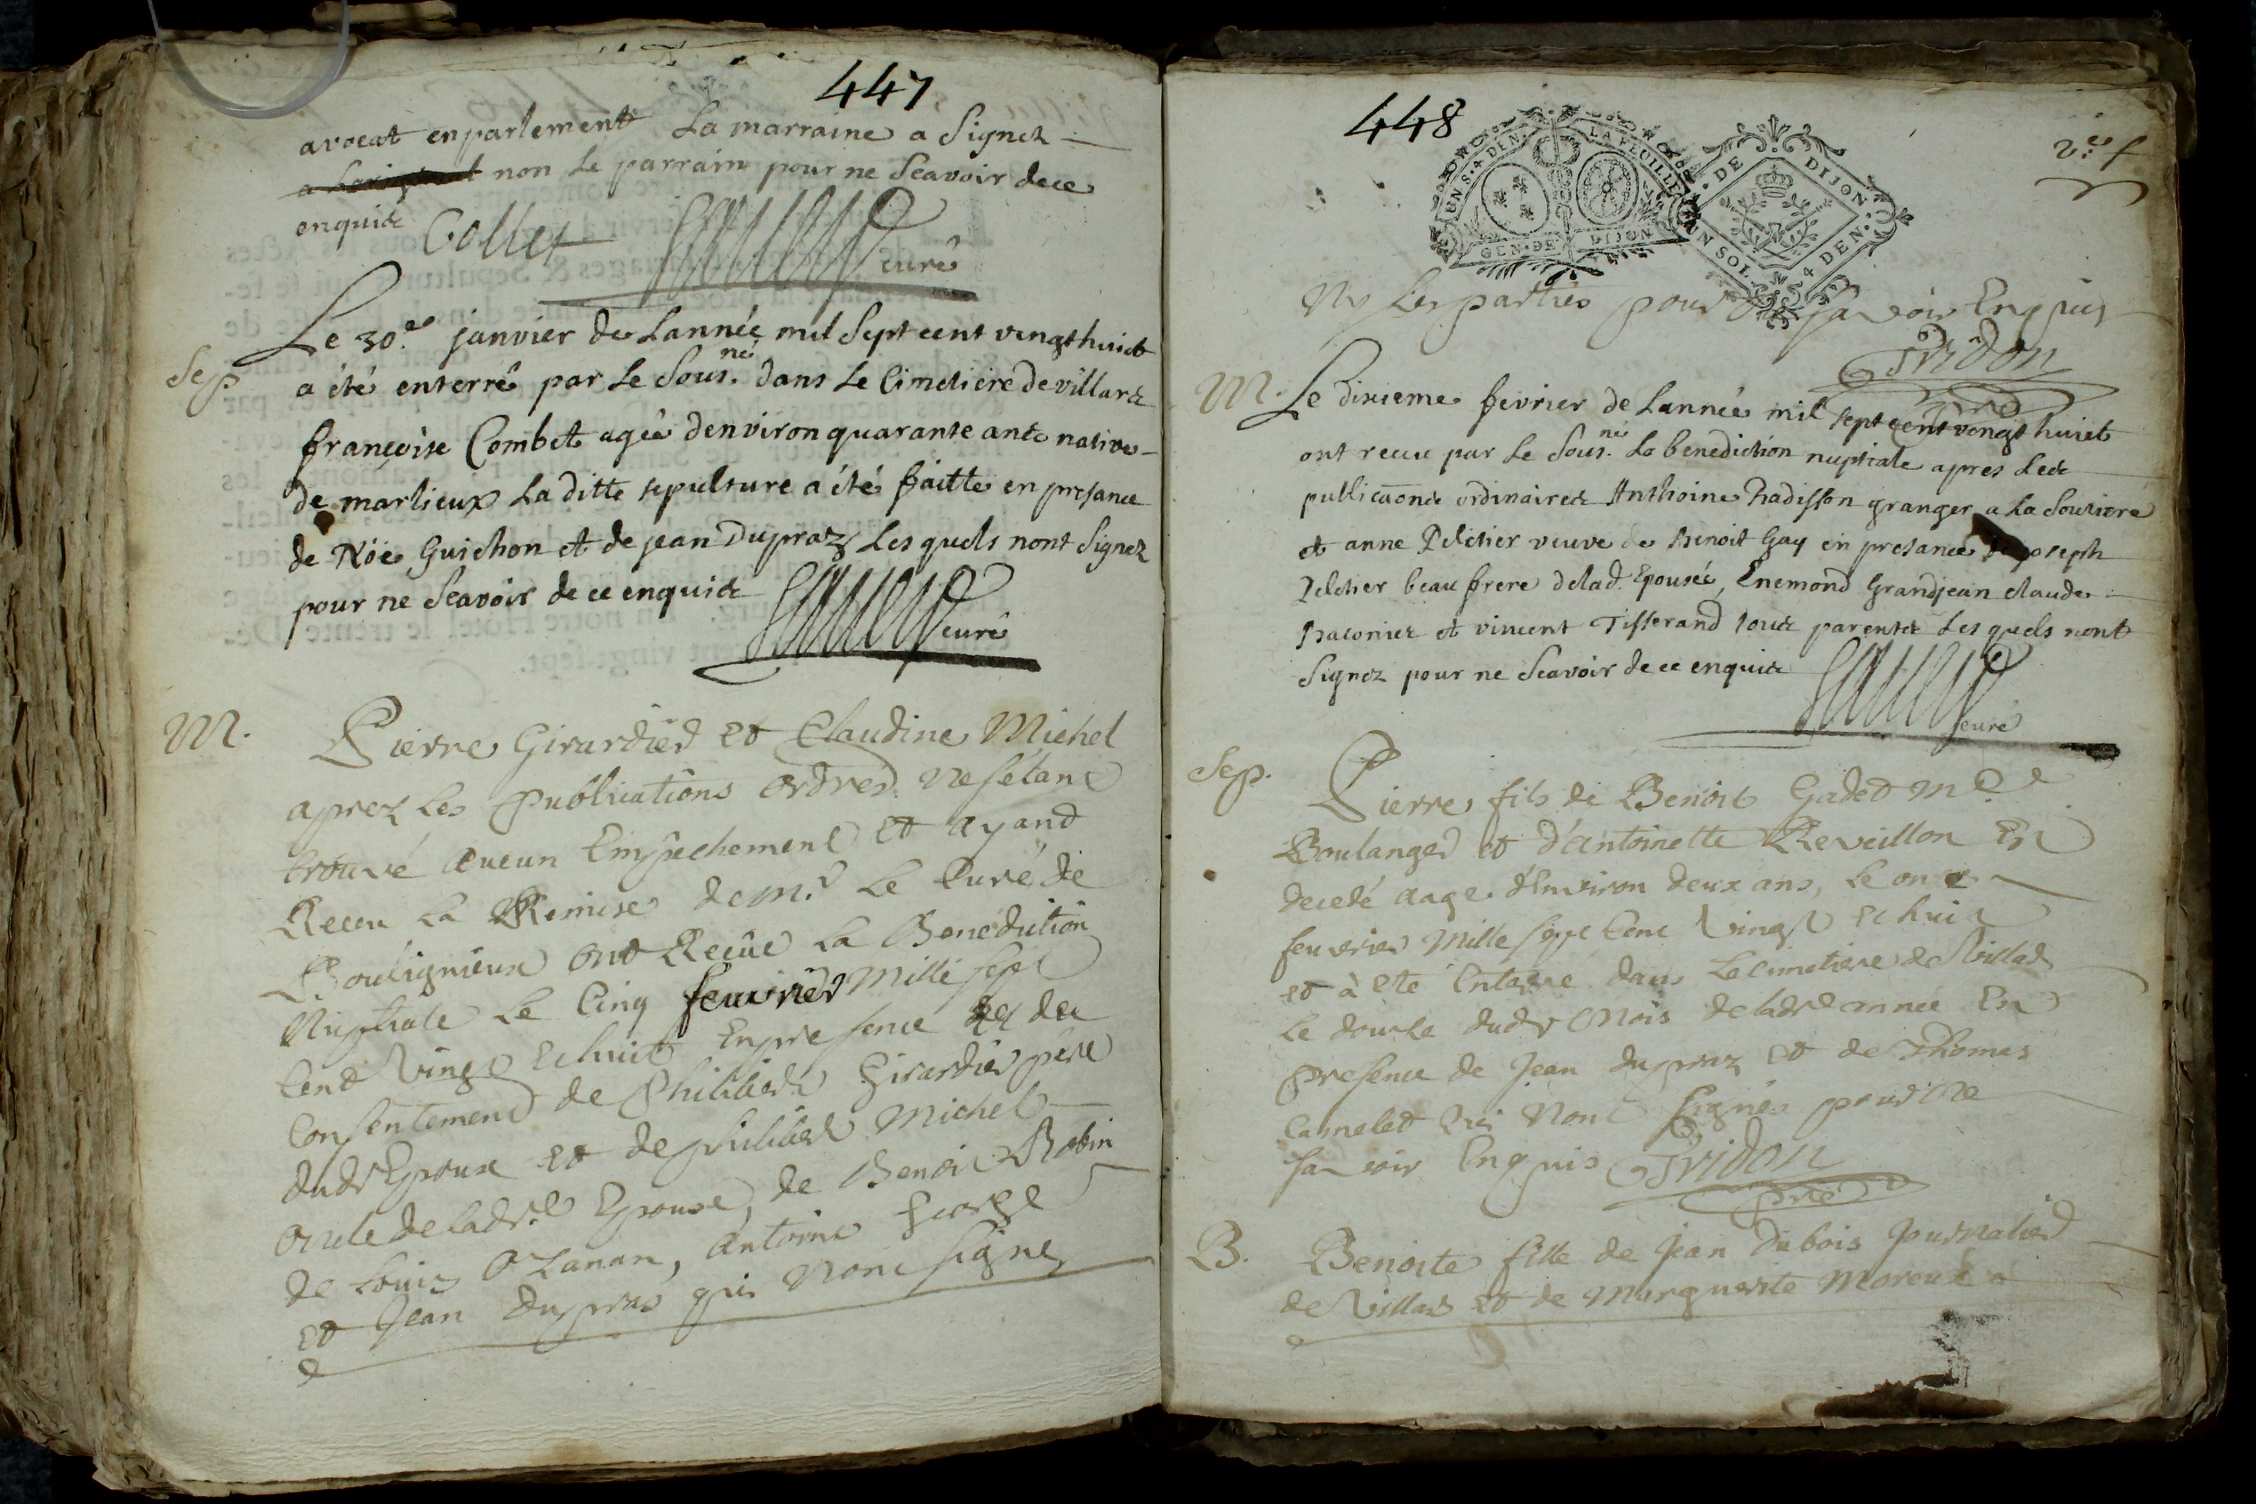 447
avocat enparlement La marraine a Signez
non Le parrain pour ne Scavoir dece
enquis Collet
curé
Sep
Le 30.e janvier de Lannée mil Sept cent vingt huict
a été enterré par Le Sous.né dans Le Cimetiere de villars
françoise Combet agée denviron quarante ans native
de marlieux La ditte sepulture a été faitte en presance
de Nöe Guichon et de jean Dupraz Les quels nont Signez
pour ne Scavoir de ce enquis
curé
M.
Pierre Girardier et Claudine Michel
aprez Les Publications Ordres Ne sétant
trouvé aucun Empêchement et ayand
Receu La Remise de m.r Le Curé de
Boulignieux Ont Reçüe La Benediction
Nuptiale Le Cinq feuvrier Mille sept
Cend Vingt et huit En presence et du
Consentement de Philibert Girardier pere
dudt Epoux et de philibert Michel
Oncle de ladte Epouse, de Benoit Robin
de Louis Ozanan, antoine George
et Jean dupras qui Nont signe
448
GEN. DE DIJON
LA FEUILLE
DE DIJON
UN SOL 4 DEN.
Ny Les parties pour Ne savoir Enquis
Tridon
ptre
M.
Le dixieme fevrier de Lannée mil sept cent vingt huict
ont receu par Le Sous.né La benediction nuptiale apres Les
publicaons ordinaires Anthoine Radisson granger a La Souriere
et anne Peletier veuve de Benoit Gay en presance de joseph
Peletier beau frere de lad. Epousée, Enemond Grandjean claude
et vincent Tisserand tous parents Les quels nont
Signez pour ne Scavoir de ce enquis
curé
Sep.
Pierre fils de Benoit Gadet
Boulanger et d'antoinette Reveillon Est
decedé aage d'Environ deux ans, Le onze
feuvrier Mille sept Cent Vingt et huit
et à été Enterré dans Le cimetiere de Villars
Le douze dudt Mois de ladte année En
presence de Jean dupraz et de Thomas
Camelet qui Nont signés pour Ne
savoir Enquis Tridon
ptre
B.
Benoite fille de Jean Dubois Journalier
de Villars et de Marguerite Moreux